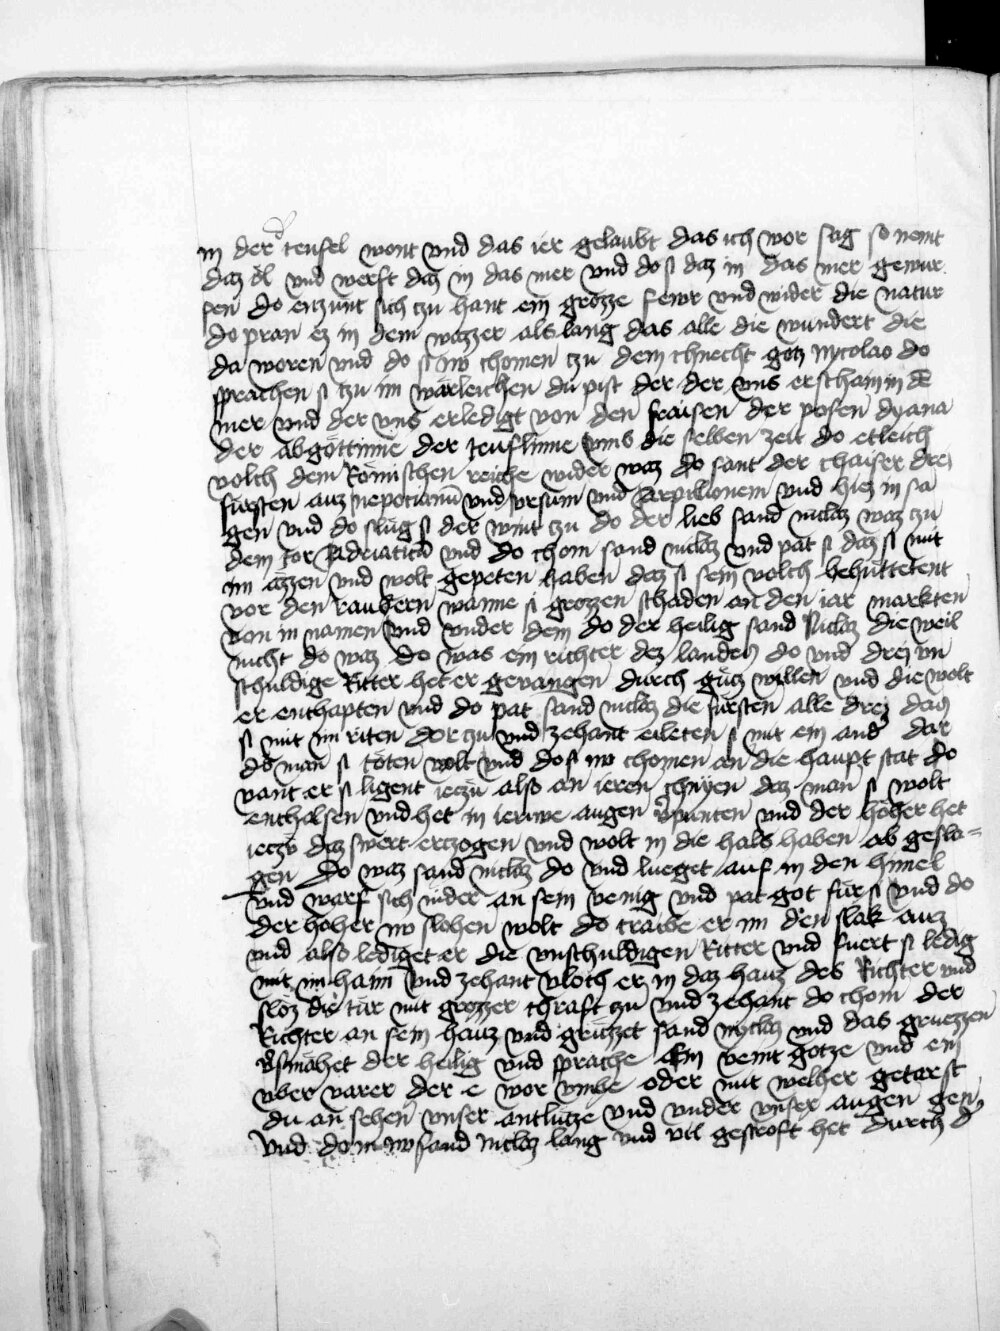 in der teufel wont vnd das ier gelaubt das ich wor sag so nemt
daz ol vnd werft daz in das mer vnd do si daz in das mer gewur
fen do enzunt sich tzu hant ein grozze fewr vnd wider die natur
do pran ez in dem wazzer als lang das alle die wundert die
da woren vnd do si nw chomen tzu dem chnecht gotz Nycolao do
sprachen si tzu im wärleichen du pist der der vns erschain in dē
mer vnd der vns erledigt von den fraisen der posen dyana
der abgöttinne der teuflinne vmb die selben zeit do etleich
volch dem Römischen reiche wider waz do sant der chaiser drey
fürsten auz nepotianū vnd vrsum vnd Arpilionem vnd hiez in sa
gen vnd do slug si der wint tzu do der lieb sand niclaz waz tzu
dem tor Adriaticū vnd do chom sand niclaz vnd pat si daz si mit
im azzen vnd wolt gepeten haben daz si sein volch behüttetent
vor den raubern wanne si grozzen schaden an den iar markten
von in namen vnd vnder dem do der heilig sand Niclaz die weil
nicht do waz do was ein richter dez landes do vnd drey vn
schuldige Ritter het er gevangen durch gutz willen vnd die wolt
er enthapten vnd do pat sand niclaz die fürsten alle drey daz
si mit im riten dor tzu vnd zehant eileten si mit ein and dar
do man si töten wolt vnd do si nw chomen an die haupt stat do
vant er si ligent ieczu also an ieren chnyen daz man si wolt
enthalsen vnd het in ierwe augen v̉punten vnd der hoher het
ieczv daz swert erczogen vnd wolt in die hals haben ab gesla-
gen Do waz sand niclaz do vnd lueget auf in den himel
vnd warf sich nider an sein venig vnd pat got für si vnd do
der hoher nw slohen wolt do traibe er im den slak auz
vnd also lediget er die vnschuldigen Ritter vnd fuert si ledig
mit im haim vnd zehant vloch er in daz hauz des Richter vnd
slöz die tür mit grozzer chraft zu vnd zehant do chom der
Richter an sein hauz vnd grüzzet sand nyclaz vnd das gruezzen
v̉smähet der heilig vnd sprache Ein veint gotze vnd ein
vber varer der e wor vmbe oder mit welher getarst
du an sehen vnser antlutze vnd vnder vnser augen gen
Vnd do in nw sand Niclaz lang vnd vil gestroft het durch d